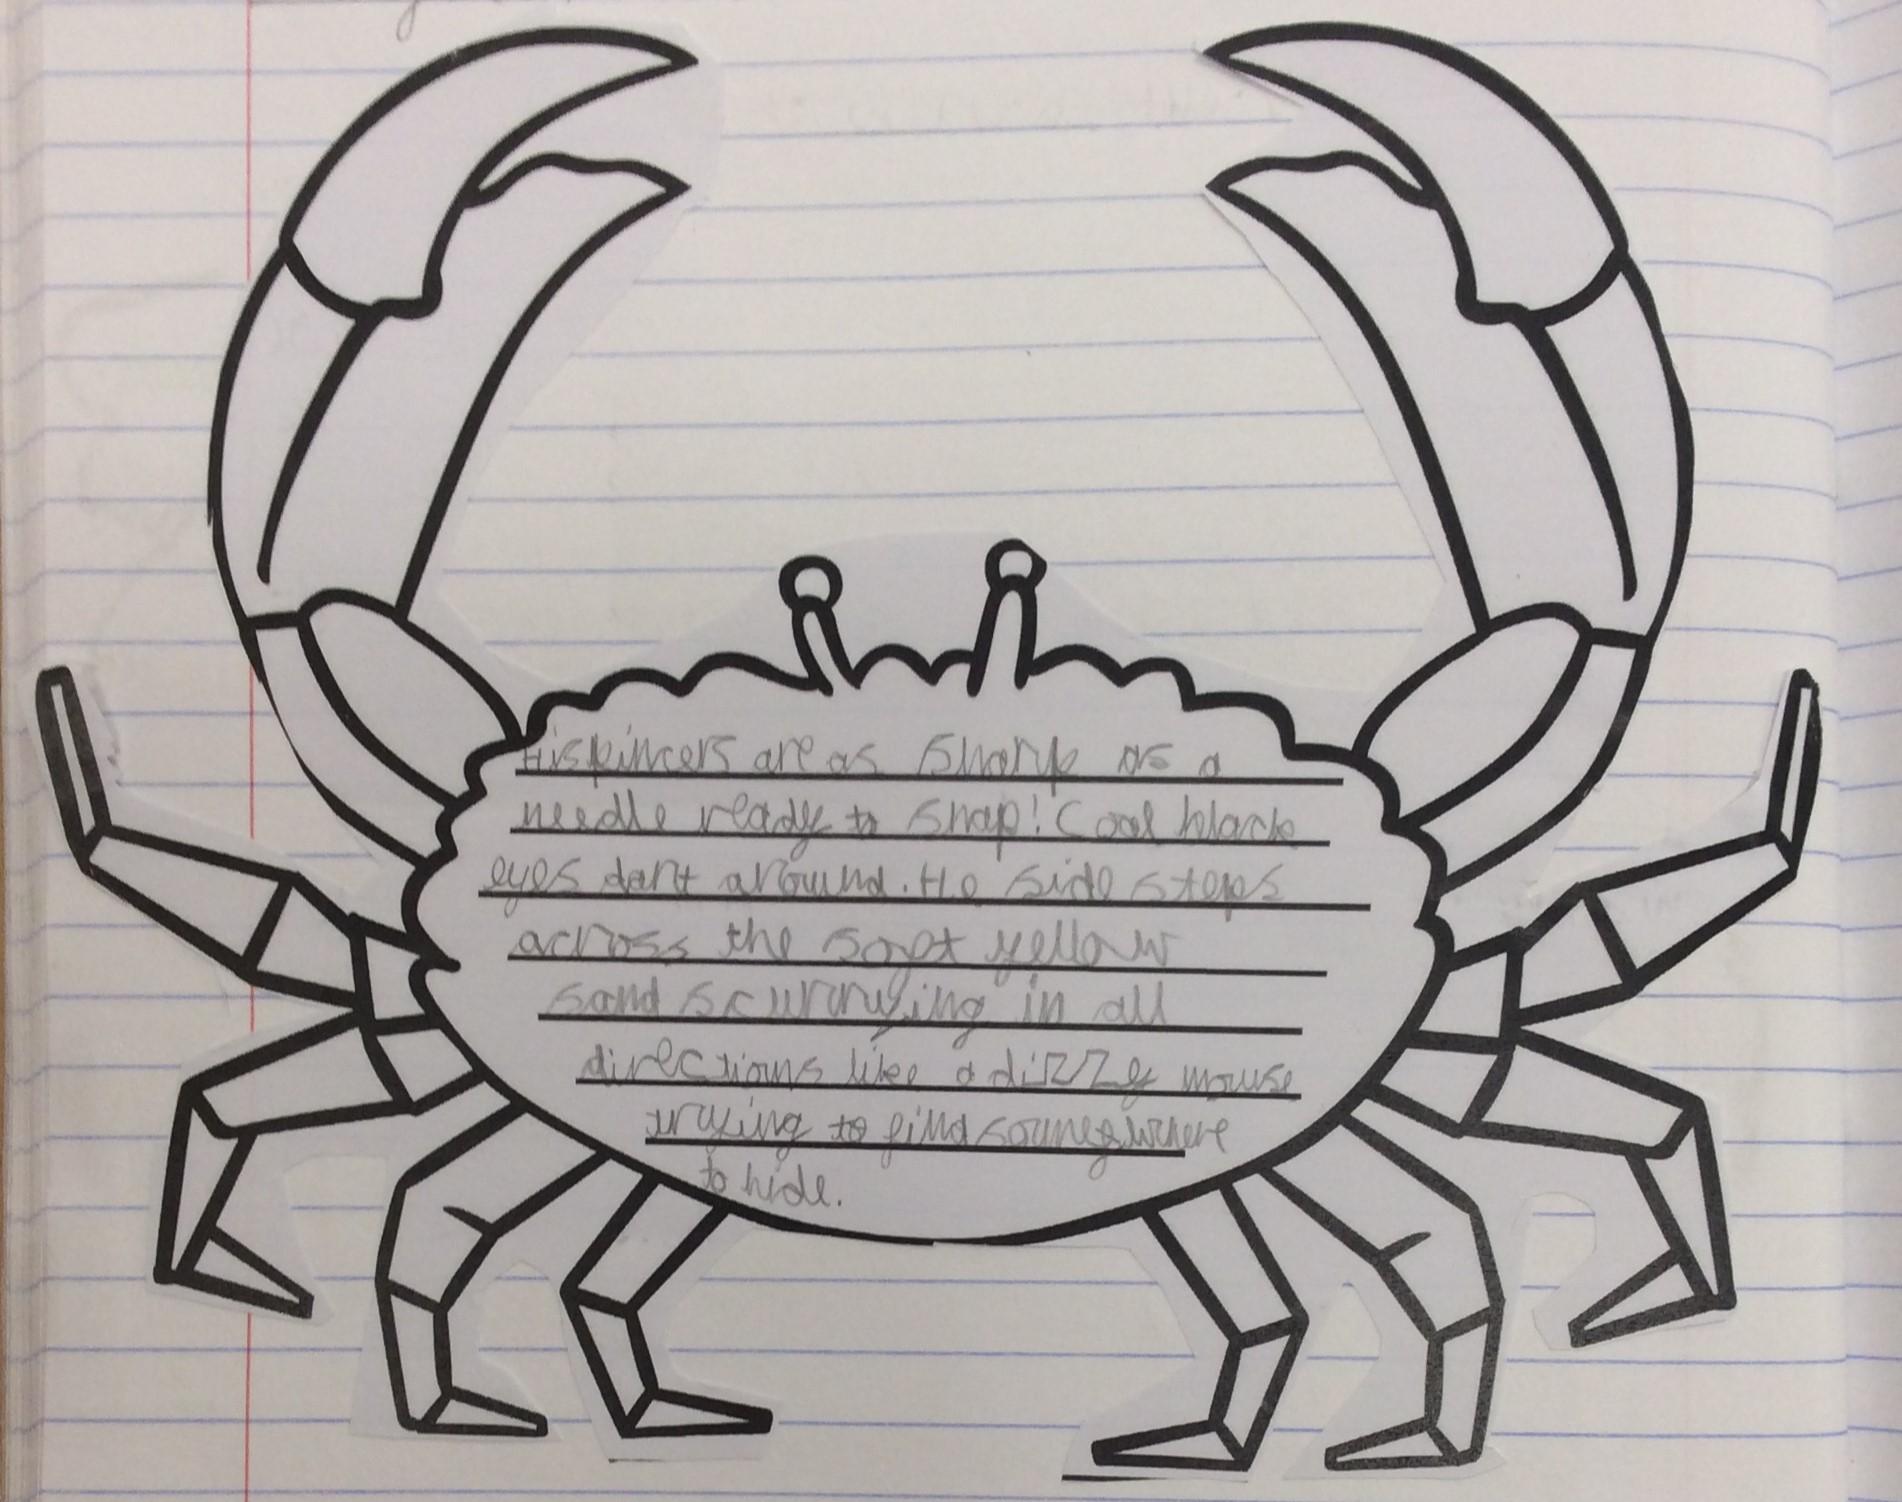 His pincers are as sharp as a
needle ready to snap! Coal black
eyes dart around. He side steps
across the soft yellow
sand scurrying in all
directions like a dizzy mouse
trying to find somewhere
to hide.